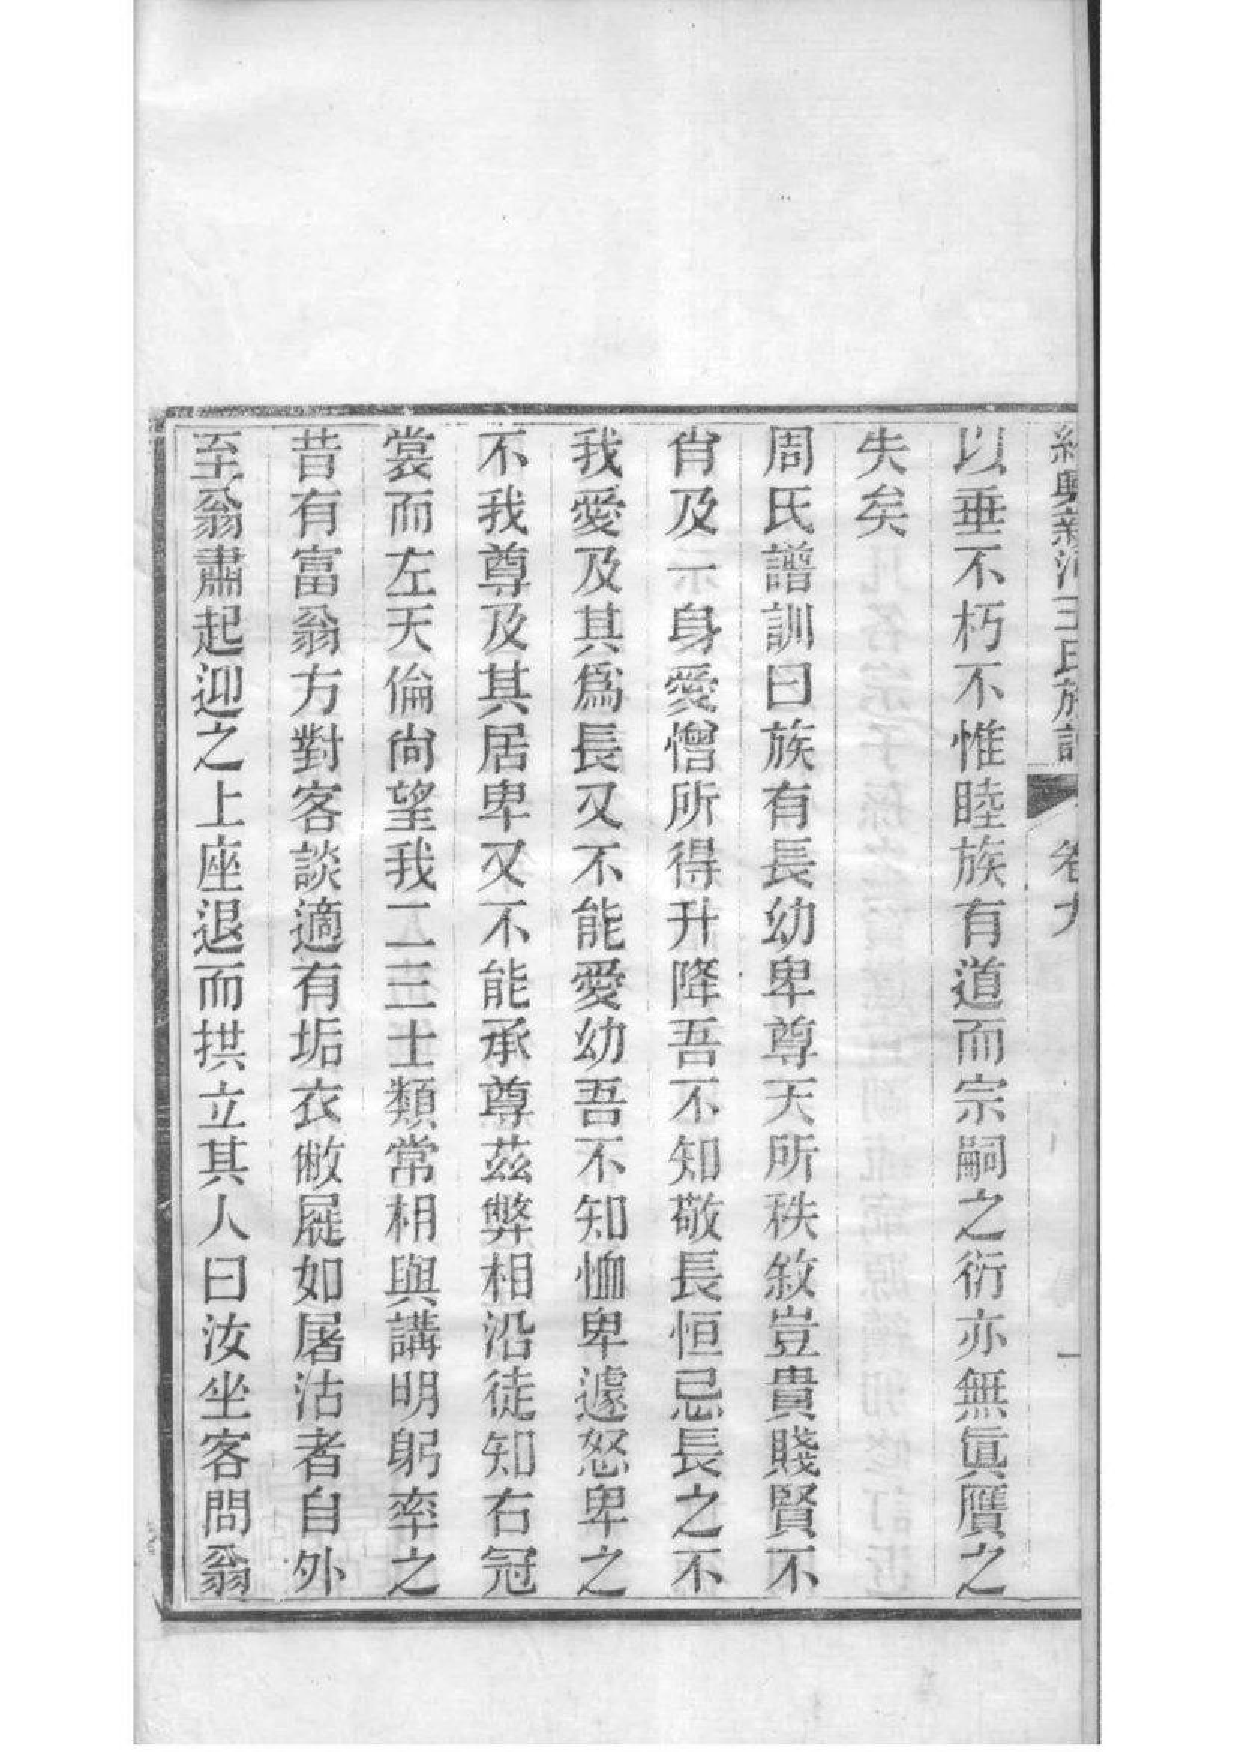 紹興新河王氏族譜 卷九 一
以垂不朽不惟睦族有道而宗嗣之衍亦無眞贋之
失矣
周氏譜訓曰族有長幼卑尊天所秩敘豈貴賤賢不
肖及一身愛憎所得升降吾不知敬長恒忌長之不
我愛及其爲長又不能愛幼吾不知恤卑遽怒卑之
不我尊及其居卑又不能承尊茲弊相沿徒知右冠
裳而左天倫尙望我二三士類常相與講明躬率之
昔有富翁方對客談適有垢衣敝屣如屠沽者自外
至翁肅起迎之上座退而拱立其人曰汝坐客問翁